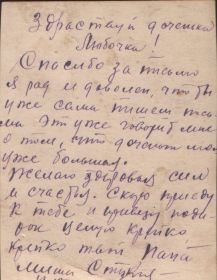 Здраствуй доченька
Любочка!
Спасибо за письмо
я рад и доволен, что ты
уже сама пишеш пись
ма Эт уже говорит мне
о том, что доченька моя
уже большая.
Желаю здоровья сил
и счастья. Скоро приеду
к тебе и привезу пода
рок целую крепко
крепко твой Папа
Миша